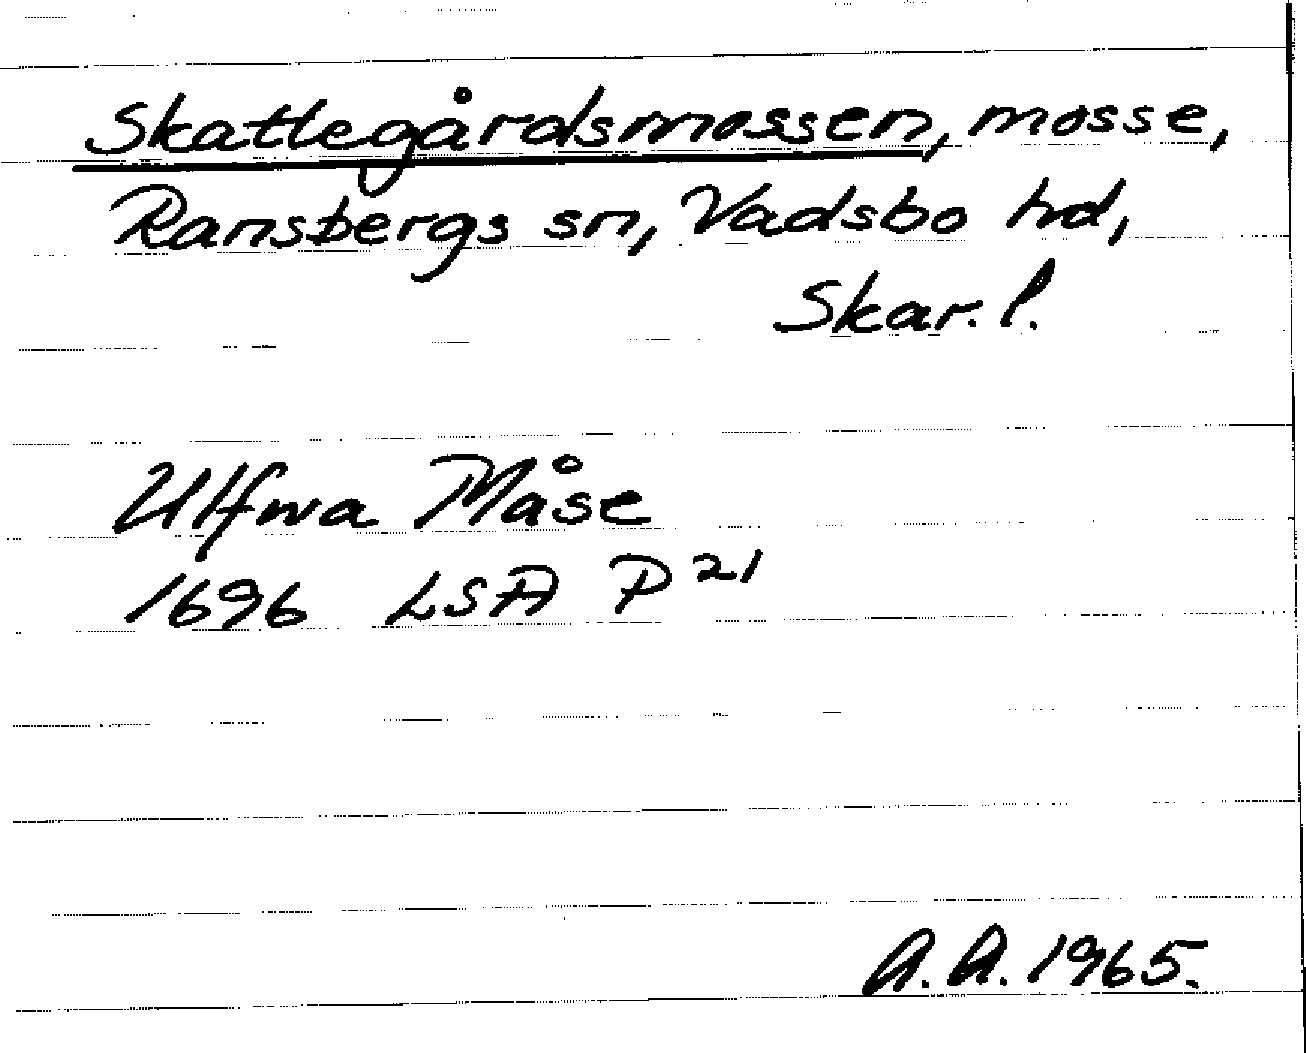 Skattegårdsmossen, mosse,
Ransbergs sn, Vadsbo hd,
Skar. l.
Ulfwa Måse
1696 LSA P 21
A.A. 1965.